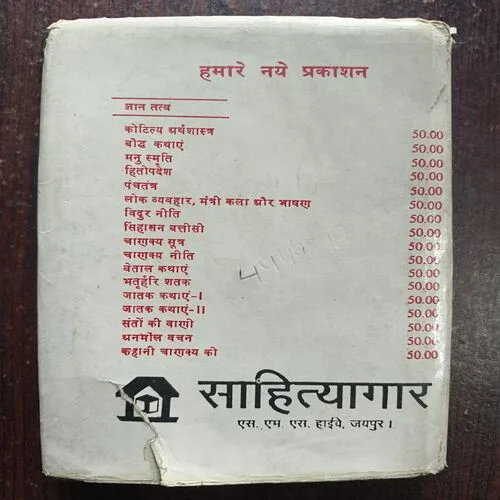 हमारे नये प्रकाशन
ज्ञान तत्व
कोटिल्य अर्थशास्त्र 50.00
बोद्ध कथाएं 50.00
मनु स्मृति 50.00
हितोपदेश 50.00
पंचतंत्र 50.00
लोक व्यवहार, मंत्री कला और भाषण 50.00
विदुर नीति 50.00
सिंहासन बत्तीसी 50.00
चाणक्य सूत्र 50.00
चाणक्य नीति 50.00
वेताल कथाएं 50.00
भतृहरि शतक 50.00
जातक कथाएं-I 50.00
जातक कथाएं-II 50.00
संतों की वाणी 50.00
अनमोल वचन 50.00
कहानी चाणक्य की 50.00
साहित्यागार
एस. एम. एस. हाईवे, जयपुर।